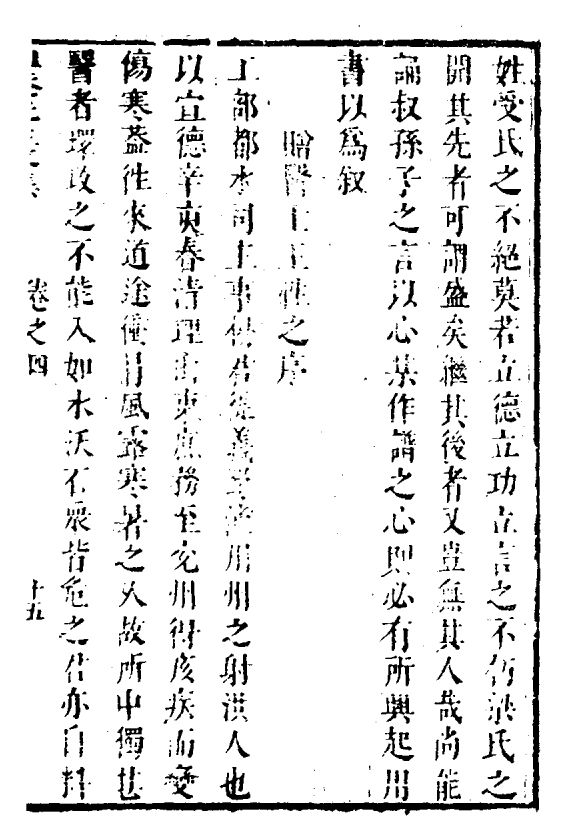 姓受氏之不絕莫若立德立功立言之不朽梁氏之
開其先者可謂盛矣繼其後者又豈無其人哉尚能
誦叔孫子之言以心某作譜之心則必有所興起用
書以為叙
贈醫士王性之序
工部都水司主事君從義潼川州之射洪人也
以宣德辛亥春清理山東庶務至兗州得痎疾而變
傷寒蓋往來道途衝冒風露寒暑之久故所中獨甚
醫者環攻之不能入如水沃石衆皆危之君亦自料
卷之四
十五